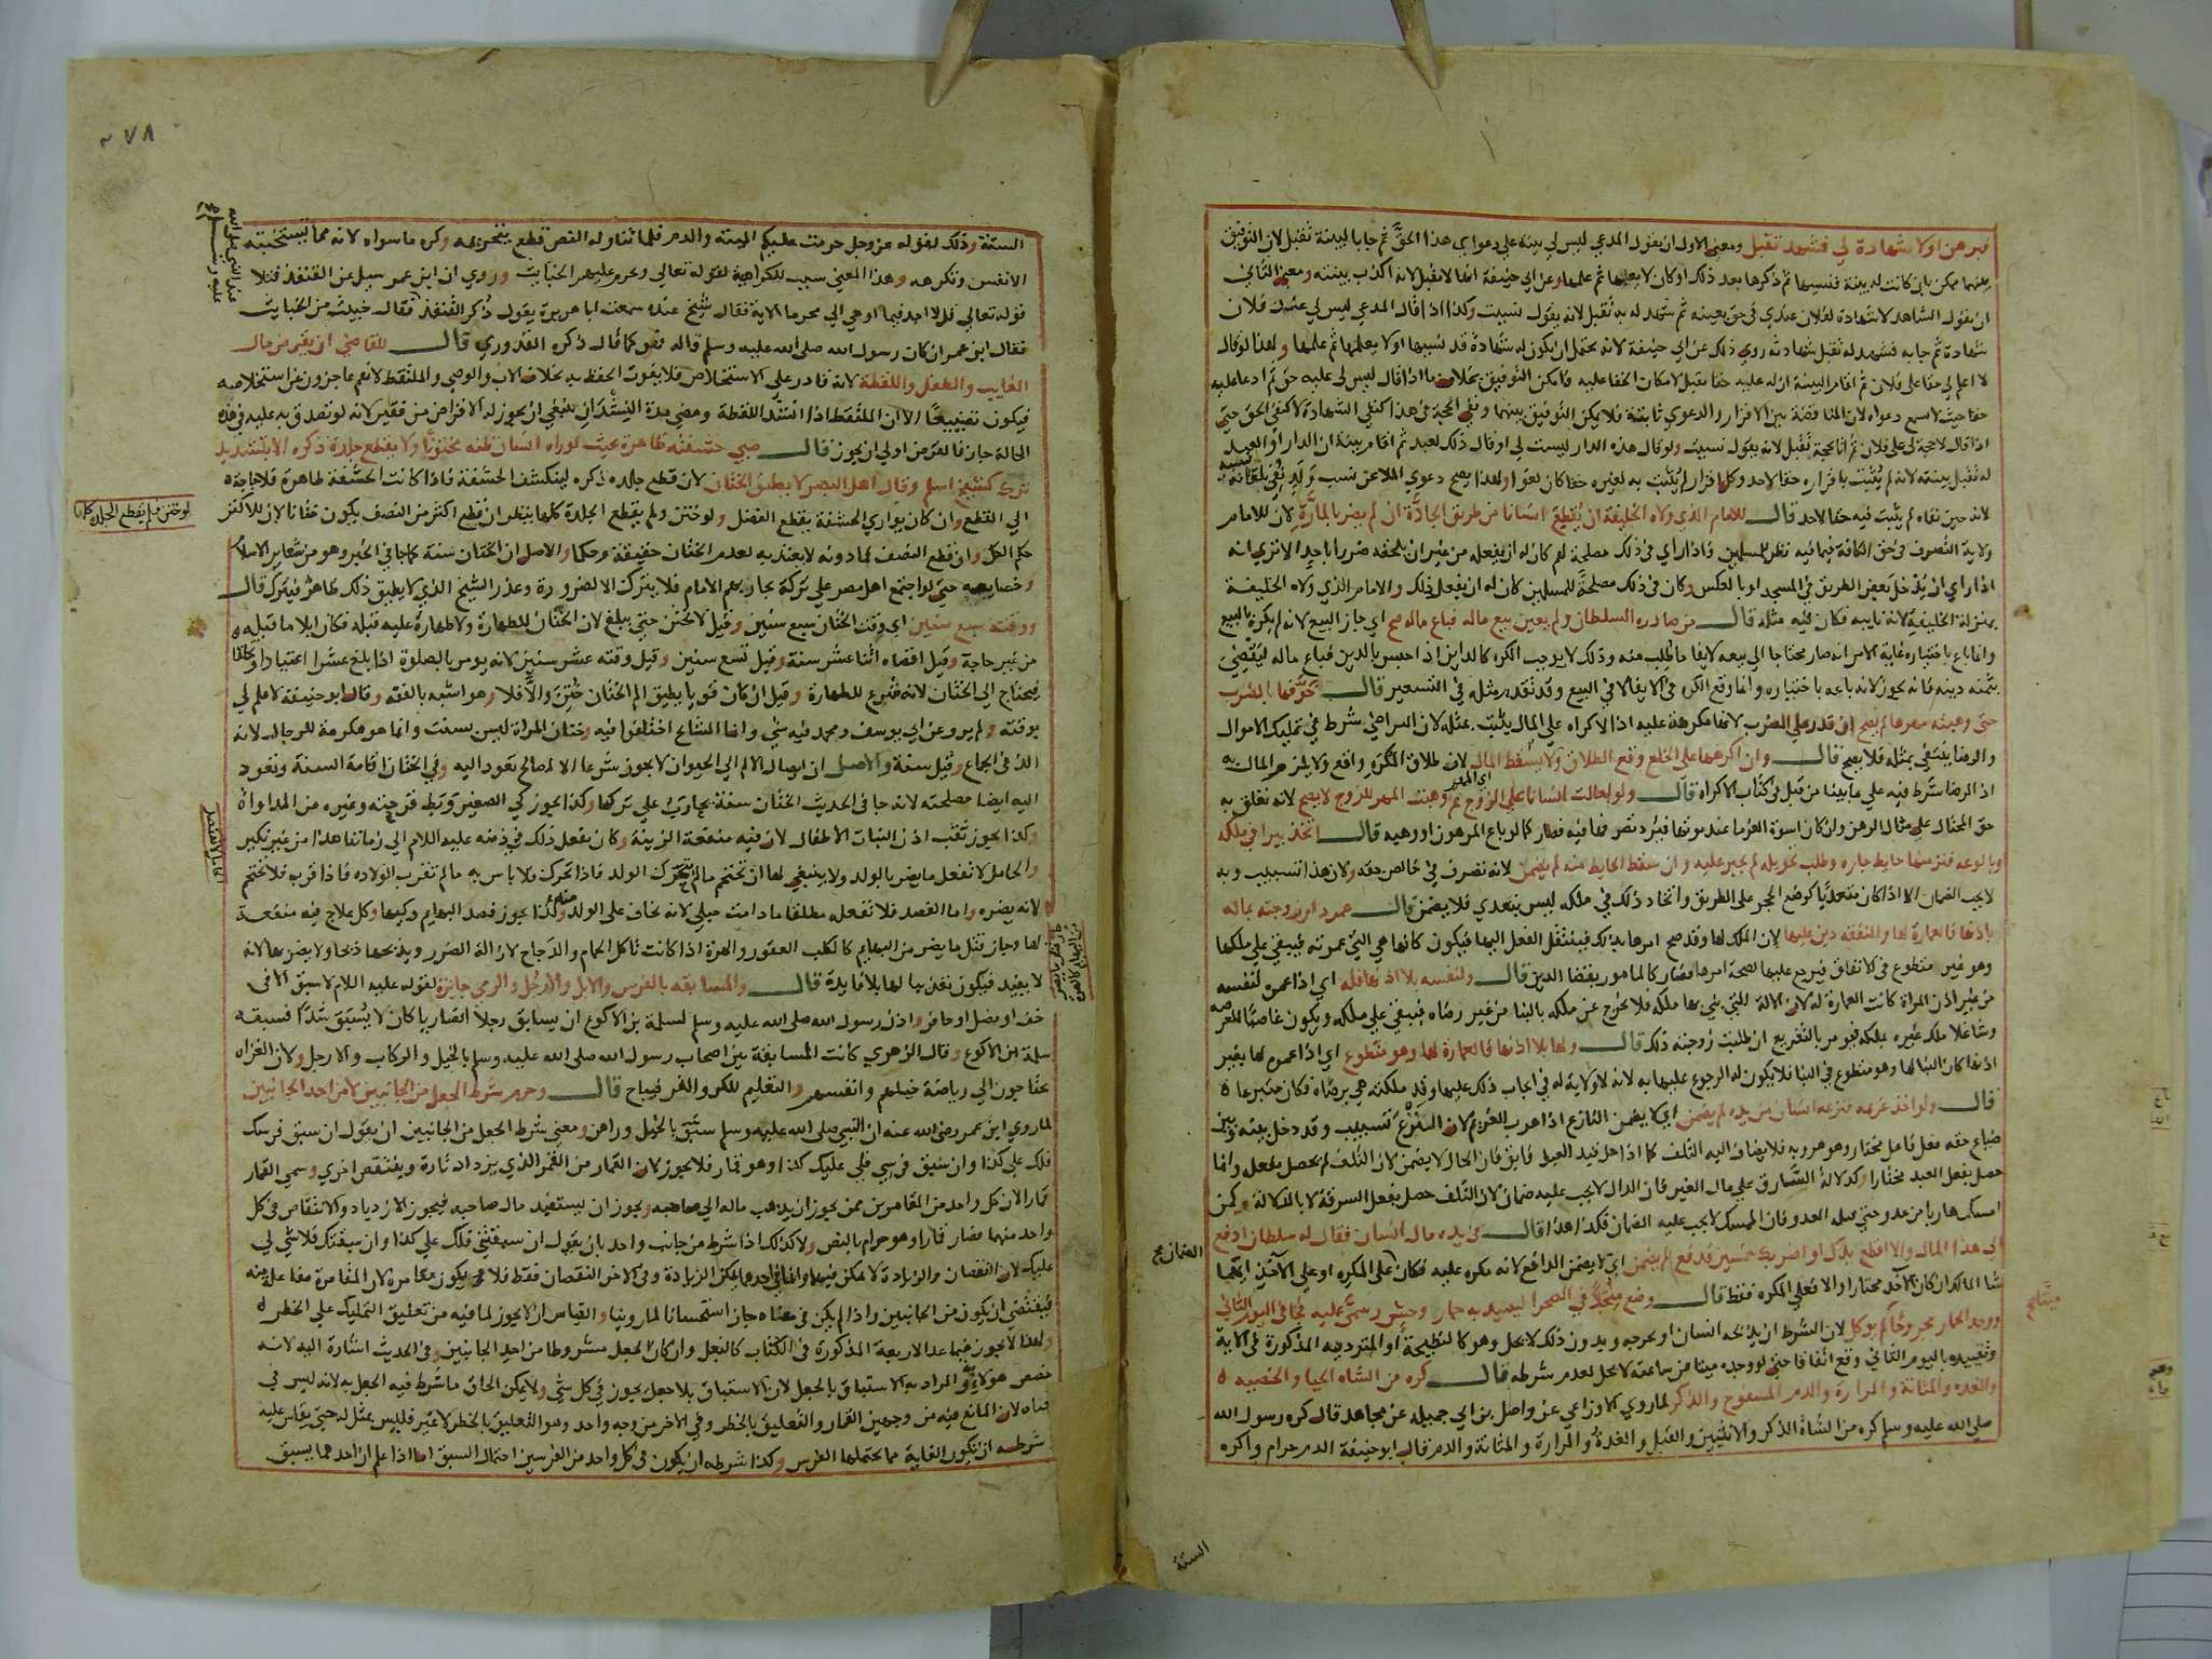 فبرهن او لا شهادة لي فشهد تقبل ومعنى الاول ان يقول المدعي ليس لي بينة على دعواي هذا الحق ثم جا بالبينة تقبل لان التوفيق
بينهما ممكن بان كانت له بينة فنسيها ثم ذكرها بعد ذلك او كان لا يعلمها ثم علمها وعن ابي حنيفة انها لا تقبل لانه اكذب بينته ومعنى الثاني
ان يقول الشاهد لا شهادة لفلان عندي في حق بعينه ثم شهد له به تقبل لانه يقول نسيت وكذا اذا قال المدعي ليس لي عند فلان
شهادة ثم جا به فشهد له تقبل شهادته روي ذلك عن ابي حنيفة لانه يحتمل ان يكون له شهادة قد نسيها او لا يعلمها ثم علمها ولهذا لو قال
لا اعلم لي حقا على فلان ثم اقام البينة ان له عليه حقا تقبل لامكان الخفا عليه فامكن التوفيق بخلاف ما اذا قال ليس لي عليه حق ثم ادعا عليه
حقا حيث لا تسمع دعواه لان المناقضة بين الاقرار والدعوي ثابتة فلا يمكن التوفيق بينهما ونفي الحجة في هذا كنفي الشهادة لا كنفي الحق حتى
اذا قال لا حجة لي على فلان ثم اتا بحجة تقبل لانه يقول نسيت ولو قال هذه الدار ليست لي او قال ذلك لعبد ثم اقام بينة ان الدار او العبد
له تقبل بينته لانه لم يثبت باقراره حقا لاحد وكل اقرار لم يثبت به لغيره حقا كان لغوا ولهذا يصح دعوي الملاعن نسب ولد نفي بلعانه نسبه
لانه حين نفاه لم يثبت فيه حقا لاحد قال للامام الذي ولاه الخليفة ان يقطع انسانا من طريق الجادة ان لم يضر بالمارة لان للامام
ولاية التصرف في حق الكافة فيما فيه نظر للمسلمين فاذا راي في ذلك مصلحة لهم كان له ان يفعله من غير ان يلحقه ضررا باحد الا تري انه
اذا راي ان يدخل بعض الطريق في المسجد او بالعكس وكان في ذلك مصلحة للمسلمين كان له ان يفعل ذلك والامام الذي ولاه الخليفة
بمنزلة الخليفة لانه نايبه فكان فيه مثله قال من صادره السلطان ولم يعين بيع ماله فباع ماله صح اي جاز البيع لانه لم يكره بالبيع
وانما باع باختياره غاية الامر انه صار محتاجا الي بيعه لايفا ما طلب منه وذلك لا يوجب الكره كالداين اذا حبس بالدين فباع ماله ليقضي
بثمنه دينه فانه يجوز لانه باعه باختياره وانما وقع الكره في الايفا لا في البيع وقد تقدم مثله في التسعير قال خوفها بالضرب
حتى وهبته مهرها لم يصح ان قدر على الضرب لانها مكرهة عليه اذ الاكراه على المال يثبت بمثله لان التراضي شرط في تمليك الاموال
والرضا ينتفي بمثله فلا يصح قال وان اكرهها على الخلع وقع الطلاق ولا يسقط المال لان طلاق المكره واقع ولا يلزم المال به
اذ الرضا شرط فيه على ما بينا من قبل في كتاب الاكراه قال ولو احالت انسانا على الزوج ثم وهبت المهر للزوج لا يصح لانه تعلق به
حق المحتال على مثال الرهن وان كان اسوة الغرما عند موتها فيرد تصرفها فيه فصار كما لو باع المرهون او وهبه قال اتخذ بيرا في ملكه
وبالوعه فنز منها حايط جاره وطلب تحويله لم يجبر عليه وان سقط الحايط منه لم يضمن لانه تصرف في خالص حقه ولان هذا تسبيب وبه
لا يجب الضمان الا اذا كان متعديا كوضع الحجر على الطريق واتخاذ ذلك في ملكه ليس بتعدي فلا يضمن قال عمر دار زوجته بماله
باذنها فالعمارة لها والنفقه دين عليها لان الملك لها وقد صح امرها بذلك فينتقل الفعل اليها فيكون كانها هي التي عمرته فيبقي على ملكها
وهو غير متطوع في الانفاق فيرجع عليها لصحة امرها فصار كالمامور بقضا الدين قال ولنفسه بلا اذنها فله اي اذا عمر لنفسه
من غير اذن المراة كانت العمارة له لان الالة التي بني بها ملكه فلا يخرج عن ملكه بالبنا من غير رضاه فيبقي على ملكه ويكون غاصبا للعرصه
وشاغلا ملك غيره بملكه فيومر بالتفريغ ان طلبت زوجته ذلك قال ولها بلا اذنها فالعمارة لها وهو متطوع اي اذا عمر لها بغير
اذنها كان البنا لها وهو متطوع في البنا فلا يكون له الرجوع عليها به لانه لا ولاية له في ايجاب ذلك عليها وقد ملكته هي برضاه فكان متبرعا
قال ولو اخذ غريمه فنزعه انسان من يده لم يضمن اي لا يضمن النازع اذا هرب الغريم لان النزع تسبيب وقد دخل بينه وبين
ضياع حقه فعل فاعل مختار وهو هروبه فلا يضاف اليه التلف كما اذا حل قيد العبد فابق فان الحال لا يضمن لان التلف لم يحصل بفعله وانما
حصل بفعل العبد مختارا وكدلالة السارق على مال الغير فان الدال لا يجب عليه ضمان لان التلف حصل بفعل السرقة لا بالدلالة وكمن
امسك هاربا من عدو حتى قتله العدو فان الممسك لا يجب عليه الضمان فكذا هذا قال في يده مال انسان فقال له سلطان ادفع
الى هذا المال والا اقطع يدك او اضربك خمسين فدفع لم يضمن اي لا يضمن الدافع لانه مكره عليه فكان على المكره او على الآخذ ايهما
شا المالك ان كان الآخذ مختارا والا فعلى المكره فقط قال وضع منجلا في الصحرا ليصيد به حمار وحش وسمى عليه فجا في اليوم الثاني
ووجد الحمار مجروحا لم يوكل لان الشرط ان يذبحه انسان او يجرحه وبدون ذلك لا يحل وهو كالنطيحة او المترديه المذكورة في الآية
وتقييده باليوم الثاني وقع اتفاقا حتى لو وجده ميتا من ساعته لا يحل لعدم شرطه قال كره من الشاه الحيا والخصيه
والغده والمثانة والمرارة والدم المسفوح والذكر لما روي الاوزاعي عن واصل بن ابي جميله عن مجاهد قال كره رسول الله
صلى الله عليه وسلم كره من الشاة الذكر والانثيين والقبل والغدة والمرارة والمثانة والدم قال ابو حنيفة الدم حرام واكره
الضمان صح
ميتا صح
الستة
٢٧٨
الستة وذلك لقوله عز وجل حرمت عليكم الميتة والدم فلما تناوله النص قطع بتحريمه وكره ما سواه لانه مما تستخبثه
الانفس وتكرهه وهذا المعني سبب للكراهية لقوله تعالي ويحرم عليهم الخبايث وروي ان ابن عمر سيل عن القنفذ فتلا
قوله تعالى قل لا اجد فيما اوحي الي محرما الاية فقال شيخ عنده سمعت ابا هريرة يقول ذكر القنفذ فقال خبيث من الخبايث
فقال ابن عمر ان كان رسول الله صلى الله عليه وسلم قاله فهو كما قال ذكره القدوري قال للقاضي ان يقرض مال
الغايب والطفل واللقطة لانه قادر على الاستخلاص فلا يفوت الحفظ به بخلاف الاب والوصي والملتقط لانهم عاجزون عن استخلاصه
فيكون تضييعا الا ان الملتقط اذا انشد اللقطة ومضي مدة النشد ان ينبغي ان يجوز له الاقراض من فقير لانه لو تصدق به عليه في هذه
الحالة جاز فالقرض اولي ان يجوز قال صبي حشفته ظاهرة بحيث لو راه انسان ظنه مختونا ولا يقطع جلدة ذكره الا بتشديد
ترك كشيخ اسلم وقال اهل البصر لا يطيق الختان لان قطع جلده ذكره لينكشف الحشفة فاذا كانت الحشفة ظاهرة فلا حاجة
الي القطع وان كان يواري الحشفة يقطع الفضل ولو ختن ولم يقطع الجلدة كلها ينظر ان قطع اكثر من النصف يكون ختانا لان للاكثر
حكم الكل وان قطع النصف فما دونه لا يعتد به لعدم الختان حقيقة وحكما والاصل ان الختان سنة كما جا في الخبر وهو من شعاير الاسلام
وخصايصه حتى لو اجتمع اهل مصر علي تركه يحاربهم الامام فلا يترك الا لضرورة وعذر الشيخ الذي لا يطيق ذلك ظاهر فيترك قال
ووقته سبع سنين اي وقت الختان سبع سنين وقيل لا يختن حتى يبلغ لان الختان للطهارة ولا طهارة عليه قبله فكان ايلاما قبله
من غير حاجة وقيل اقصاه اثنا عشر سنة وقيل تسع سنين وقيل وقته عشر سنين لانه يومر بالصلوة اذا بلغ عشرا اعتيادا وتخلقا
فيحتاج الي الختان لانه شرع للطهارة وقيل ان كان قويا يطيق الم الختان ختن والا فلا وهو اشبه بالفقه وقال ابو حنيفة لا علم لي
بوقته ولم يرو عن ابي يوسف ومحمد فيه شي وانما المشايخ اختلفوا فيه وختان المراة ليس بسنة وانما هو مكرمة للرجال لانه
الذ في الجماع وقيل سنة والاصل ان ايصال الالم الي الحيوان لا يجوز شرعا الا لمصالح تعود اليه وفي الختان اقامة السنة وتعود
اليه ايضا مصلحته لانه جا في الحديث الختان سنة يحارب علي تركها وكذا يجوز كي الصغير وبط قرحته وغيره من المداواة
وكذا يجوز ثقب اذن البنات الاطفال لان فيه منفعة الزينة وكان يفعل ذلك في زمنه عليه السلام الي زماننا هذا من غير نكير
والحامل لا تفعل ما يضر بالولد ولا ينبغي لها ان تحتجم ما لم يتحرك الولد فاذا تحرك فلا باس به ما لم تقرب الولاده فاذا قربت فلا تحتجم
لانه يضره واما الفصد فلا تفعله مطلقا ما دامت حبلي لانه يخاف على الولد منه وكذا يجوز فصد البهايم وكيها وكل علاج فيه منفعة
لها وجاز قتل ما يضر من البهايم كالكلب العقور والهرة اذا كانت تاكل الحمام والدجاج لازالة الضرر ويذبحها ذبحا ولا يضربها لانه
لا يفيد فيكون تعذيبا لها بلا فايدة قال والمسابقه بالفرس والابل والارجل والرمي جايزة لقوله عليه السلام لا سبق الا في
خف او نصل او حافر واذن رسول الله صلى الله عليه وسلم لسلمة بن الاكوع ان يسابق رجلا انصاريا كان لا يسبق شدا فسبقه
سلمة ابن الاكوع وقال الزهري كانت المسابقة بين اصحاب رسول الله صلى الله عليه وسلم بالخيل والركاب والارجل ولان الغزاه
يحتاجون الي رياضة خيلهم وانفسهم والتعليم للكر والفر فيباح قال وحرم شرط الجعل من الجانبين لا من احد الجانبين
لما روي ابن عمر رضى الله عنه ان النبي صلى الله عليه وسلم سبق بالخيل وراهن ومعني شرط الجعل من الجانبين ان يقول ان سبق فرسك
فلك علي كذا وان سبق فرسي فلي عليك كذا وهو قمار فلا يجوز لان القمار من القمر الذي يزداد تارة وينتقص اخري وسمي القمار
قمارا لان كل واحد من المقامرين ممن يجوز ان يذهب ماله الي صاحبه ويجوز ان يستفيد مال صاحبه فيجوز الازدياد والانتقاص في كل
واحد منهما فصار قمارا وهو حرام بالنص ولا كذلك اذا شرط من جانب واحد بان يقول ان سبقتني فلك علي كذا وان سبقتك فلا شي لي
عليك لان النقصان والزيادة لا يمكن فيهما وانما في احدهما يمكن الزيادة وفي الاخر النقصان فقط فلا يكون مقامرة لان المقامرة مفاعلة منه
فيقتضي ان يكون من الجانبين واذا لم يكن في معناه جاز استحسانا لما روينا والقياس ان لا يجوز لما فيه من تعليق التمليك علي الخطر
ولهذا لا يجوز فيما عدا الاربعة المذكورة في الكتاب كالبغل وان كان الجعل مشروطا من احد الجانبين وفي الحديث اشارة اليه لانه
خصص هولاء والمراد به الاستباق بالجعل لان الاستباق بلا جعل يجوز في كل شي ولا يمكن الحاق ما شرط فيه الجعل به لانه ليس في
معناه لان المانع فيه من وجهين القمار والتعليق بالخطر وفي الاخر من وجه واحد وهو التعليق بالخطر لا غير فليس بمثل له حتى يقاس عليه
شرطه ان تكون الغاية مما يحتملها الفرس وكذا شرطه ان يكون في كل واحد من الفرسين احتمال السبق اما اذا علم ان احدهما يسبق
لو ختن ولم يقطع الجلدة كلها